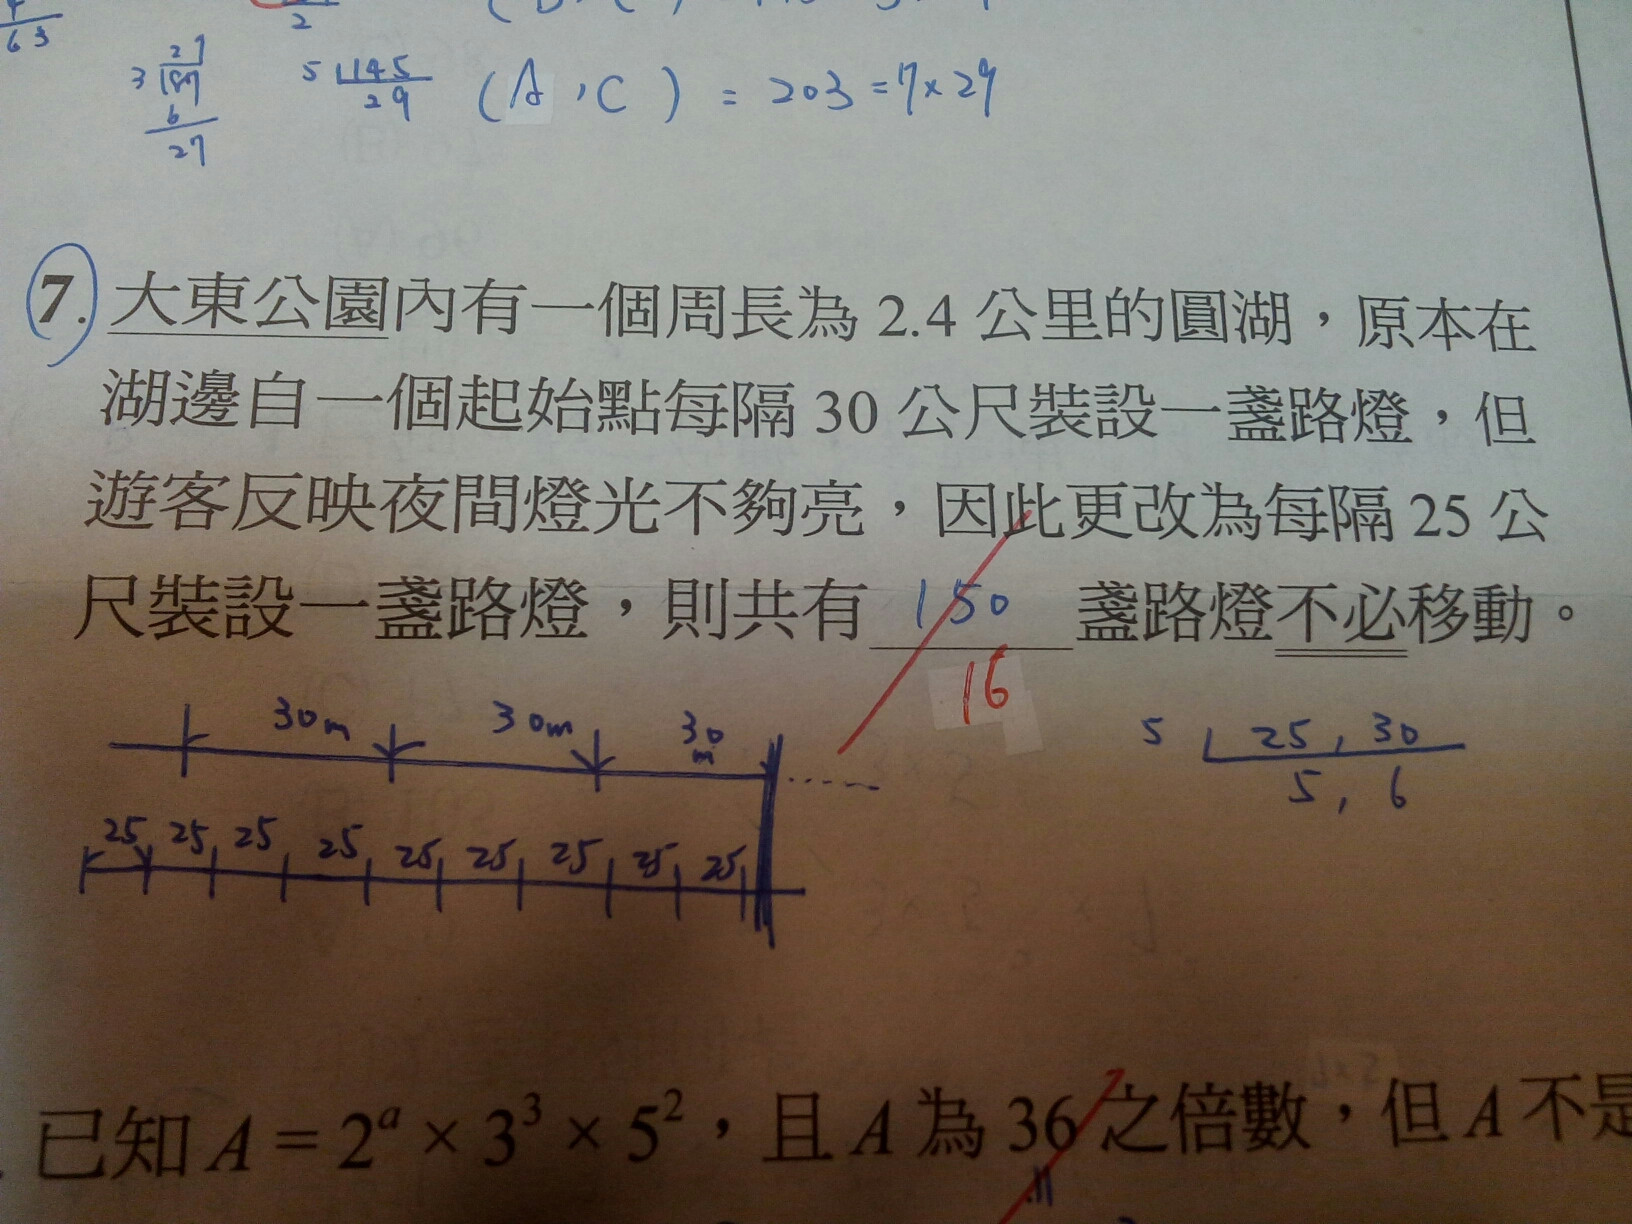 63
2
3 187 27
6
27
5 145
29
(A, C) = 203 = 7 × 29
7. 大東公園內有一個周長為 2.4 公里的圓湖，原本在
湖邊自一個起始點每隔 30 公尺裝設一盞路燈，但
遊客反映夜間燈光不夠亮，因此更改為每隔 25 公
尺裝設一盞路燈，則共有 150 盞路燈不必移動。
16
30m 30m 30m ......
25 25 25 25 25 25 25 25 25
5 25, 30
5, 6
已知 A = 2^a × 3^3 × 5^2，且 A 為 36 之倍數，但 A 不是